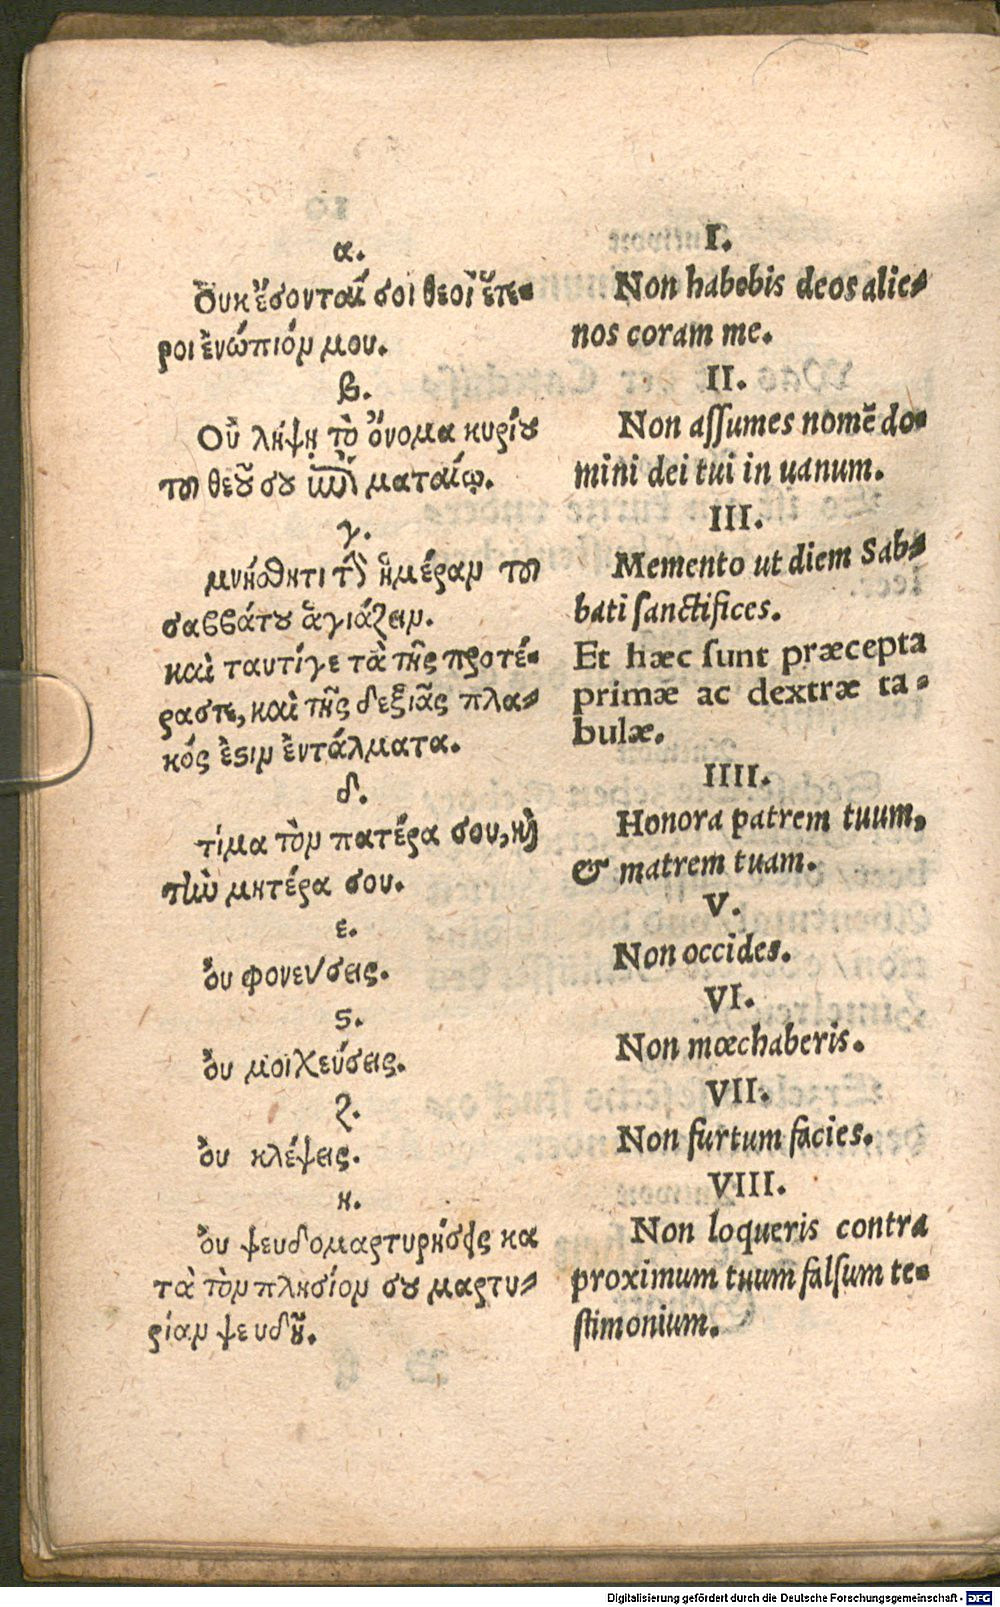 α.
Ὂυκ ἔσονταί σοι θεοὶ ἕτε-
ροι ἐνώπιόν μου.
β.
Οὐ λήψῃ τὸ ὄνομα κυρίου
τοῦ θεοῦ σου ἐπὶ ματαίῳ.
γ.
μνήσθητι τὴν ἡμέραν τοῦ
σαββάτου ἁγιάζειν.
καὶ ταυτίγε τὰ τῆς προτέ-
ραστε, καὶ τῆς δεξιᾶς πλα-
κός ἐστιν ἐντάλματα.
δ.
τίμα τὸν πατέρα σου, καὶ
τὴν μητέρα σου.
ε.
ὂυ φονεύσεις.
ς.
ὂυ μοιχεύσεις.
ζ.
ὂυ κλέψεις.
η.
ὂυ ψευδομαρτυρήσῃς κα
τὰ τὸν πλησίον σου μαρτυ-
ρίαν ψευδῆ.
I.
Non habebis deos alie-
nos coram me.
II.
Non aſſumes nomē do-
mini dei tui in uanum.
III.
Memento ut diem Sab-
bati ſanctifices.
Et hæc ſunt præcepta
primæ ac dextræ ta-
bulæ.
IIII.
Honora patrem tuum,
& matrem tuam.
V.
Non occides.
VI.
Non mœchaberis.
VII.
Non furtum facies.
VIII.
Non loqueris contra
proximum tuum falſum te-
ſtimonium.
Digitalisierung gefördert durch die Deutsche Forschungsgemeinschaft - DFG